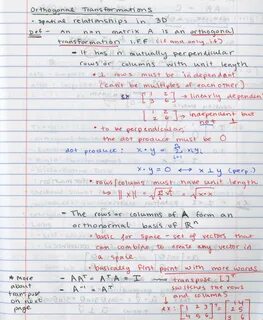 Orthogonal Transformations
- spatial relationships in 3D
def - an nxn matrix A is an orthogonal
transformation I.F.F (if and only if)
- it has n mutually perpendicular
rows or columns with unit length
• 2 rows must be independant
(can't be multiples of each other)
ex [1 2 / 3 6] → linearly dependen
→ independent but
• to be perpendicular,
the dot product must be 0
dot product: x · y = Σ xᵢyᵢ
x · y = 0 ⟷ x ⊥ y (perp.)
• rows/columns must have unit length
↳ ||x|| = √Σxᵢ² = √x·x
- The rows or columns of A form an
orthonormal basis of ℝⁿ
- basis for space - set of vectors that
can combine to create any vector in
a space.
- basically first point with more words
* More
about
transpose
on next
page
- AAᵀ = AᵀA = I
- A⁻¹ = Aᵀ
transpose [ ]ᵀ
switches the rows
and columns
ex: